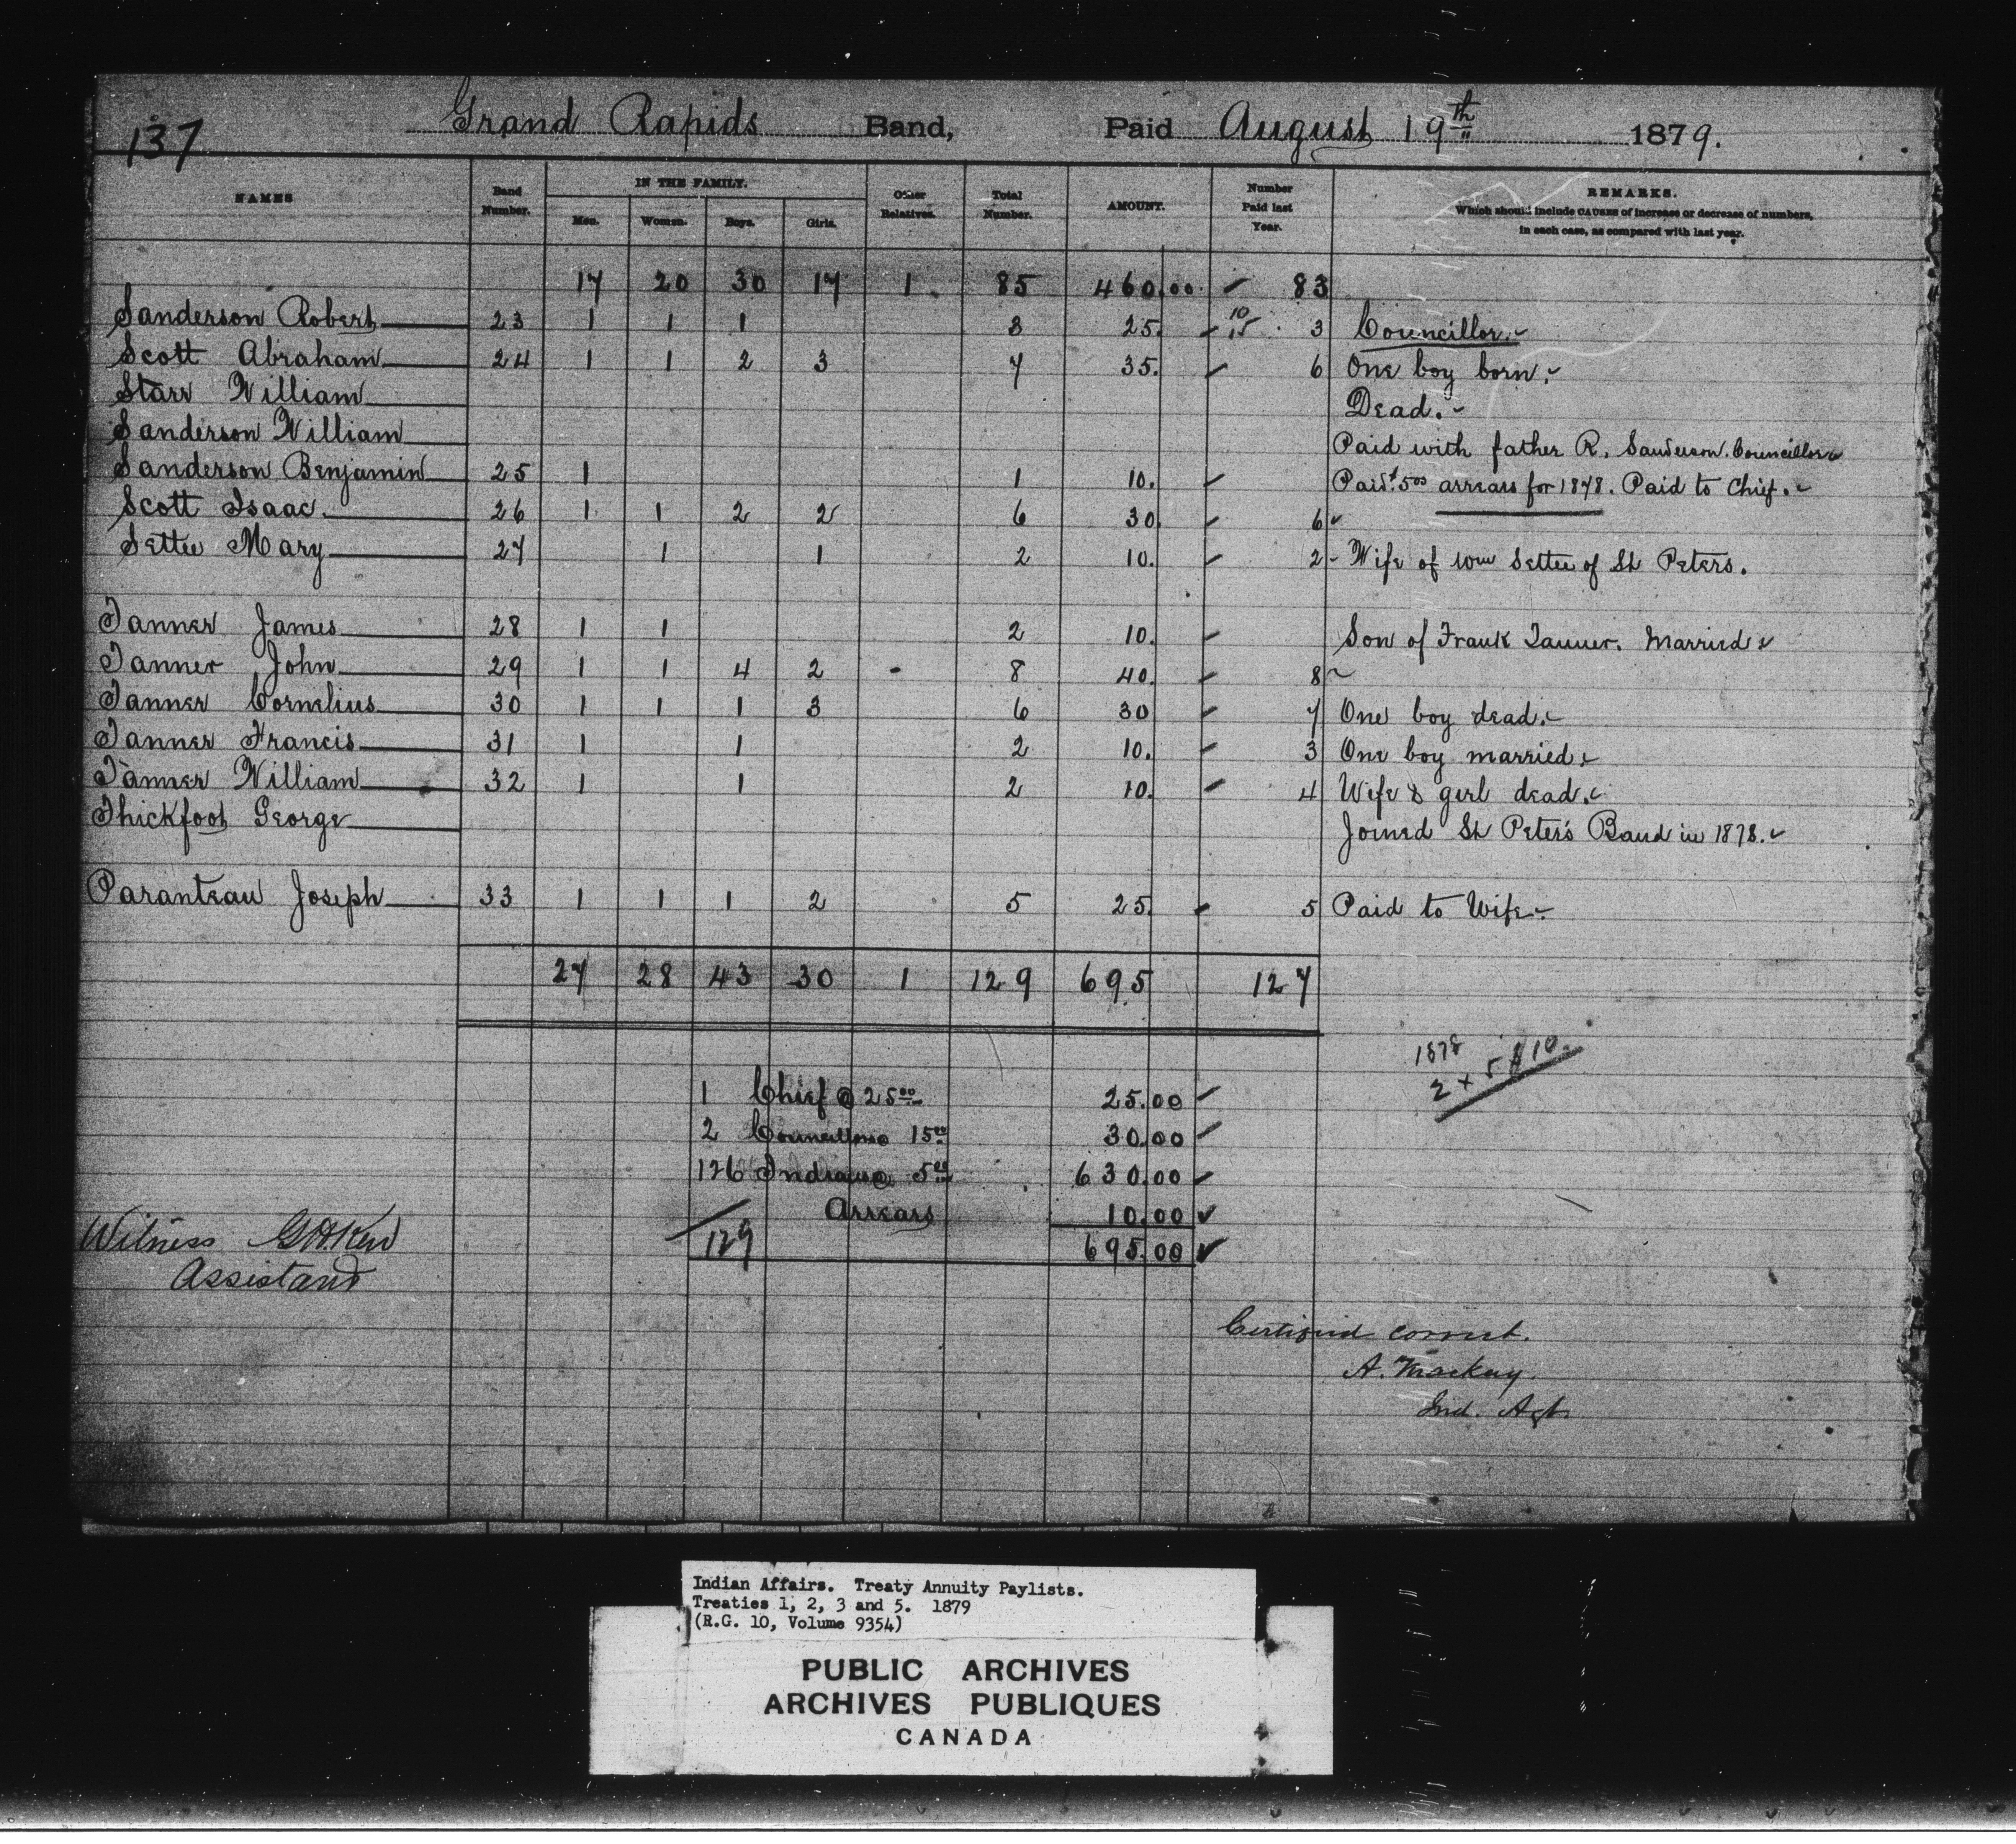 137 Grand Rapids Band, Paid August 19th 1879.
NAMES Band Number. IN THE FAMILY. Men. Women. Boys. Girls. Other Relatives. Total Number. AMOUNT. Number Paid last Year. REMARKS.
Which should include CAUSES of increase or decrease of numbers,
in each case, as compared with last year.
17 20 30 17 1. 85 460.00. 83
Sanderson Robert 23 1 1 1 3 25. 10 15 3 Councillor.
Scott Abraham 24 1 1 2 3 7 35. 6 One boy born.
Starr William Dead.
Sanderson William Paid with father R. Sanderson. Councillor
Sanderson Benjamin 25 1 1 10. Paid $5.00 arrears for 1878. Paid to Chief.
Scott Isaac. 26 1 1 2 2 6 30 6
Settee Mary 27 1 1 2 10. 2 - Wife of Wm Settee of St Peters.
Tanner James 28 1 1 2 10. Son of Frank Tanner. Married
Tanner John 29 1 1 4 2 - 8 40. 8
Tanner Cornelius 30 1 1 1 3 6 30 7 One boy dead.
Tanner Francis 31 1 1 2 10. 3 One boy married.
Tanner William 32 1 1 2 10. 4 Wife & girl dead.
Thickfoot George Joined St Peter's Band in 1878.
Paranteau Joseph 33 1 1 1 2 5 25. 5 Paid to Wife
27 28 43 30 1 129 695 127
1878
2 x 5 $10.
1 Chief @ 25.00 25.00
2 Councillors 15.00 30.00
126 Indians @ 5.00 630.00
Arrears 10.00
129 695.00
Witness
Assistant
Certified correct.
A. Mackay.
Ind. Agt.
Indian Affairs. Treaty Annuity Paylists.
Treaties 1, 2, 3 and 5. 1879
(R.G. 10, Volume 9354)
PUBLIC ARCHIVES
ARCHIVES PUBLIQUES
CANADA